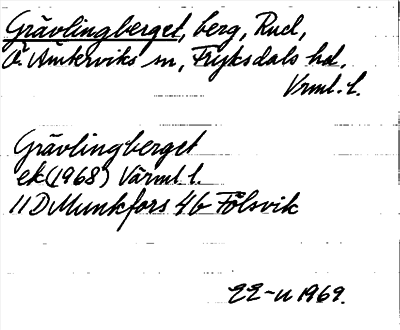 Grävlingberget, berg, Rud,
Ö. Ämterviks sn, Fryksdals hd,
Vrml. l.
Grävlingberget
ek (1968) Värml. l.
11 D Munkfors 4b Fölsvik
22-11 1969.